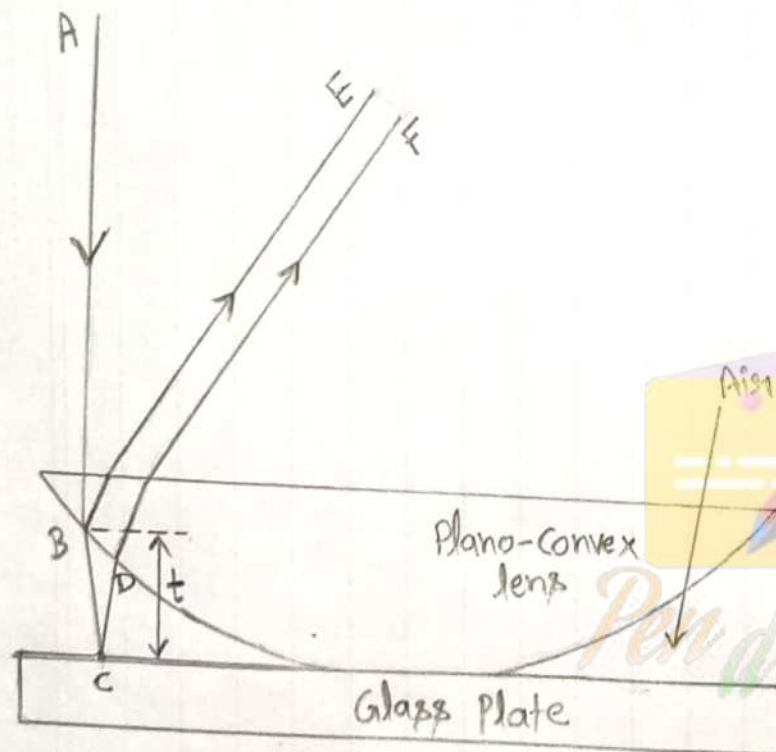 A
E
F
Air
B
D
t
Plano-Convex
lens
C
Glass Plate
Pen